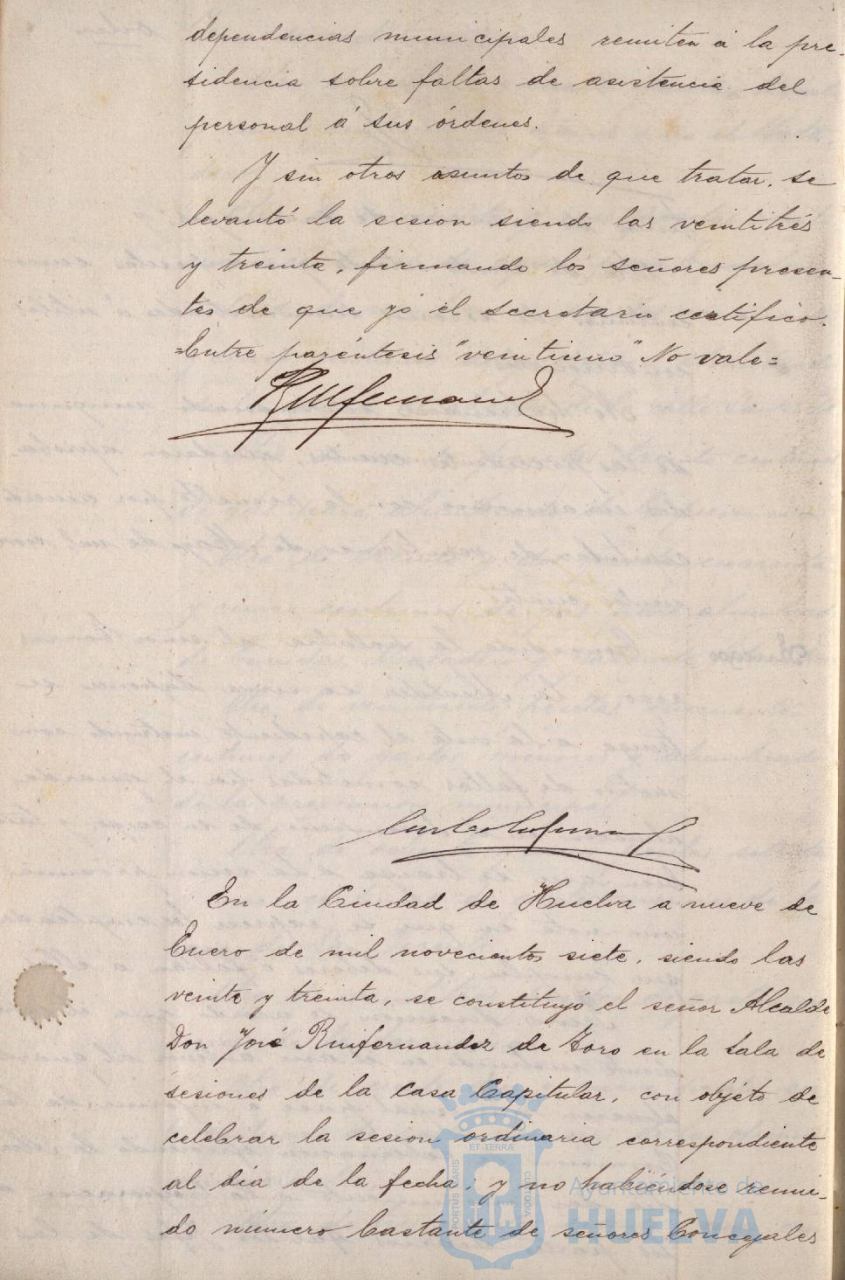 dependencias municipales remiten á la pre-
sidencia sobre faltas de asistencia del
personal á sus órdenes.
Y sin otros asuntos de que tratar, se
levantó la sesion siendo las veintitrés
y treinta, firmando los señores presen-
tes de que yó el secretario certifico.
=Entre paréntesis "veintiuno" No vale=
En la Ciudad de Huelva a nueve de
Enero de mil novecientos siete, siendo las
veinte y treinta, se constituyó el señor Alcalde
Don José Ruifernandez de Toro en la Sala de
sesiones de la Casa Capitular, con objéto de
celebrar la sesion ordinaria correspondiente
al día de la fecha; y no habiéndose reuni-
do número bastante de señores Concejales
PORTUS MARIS
ET TERRÆ
CUSTODIA
Ayuntamiento de
HUELVA